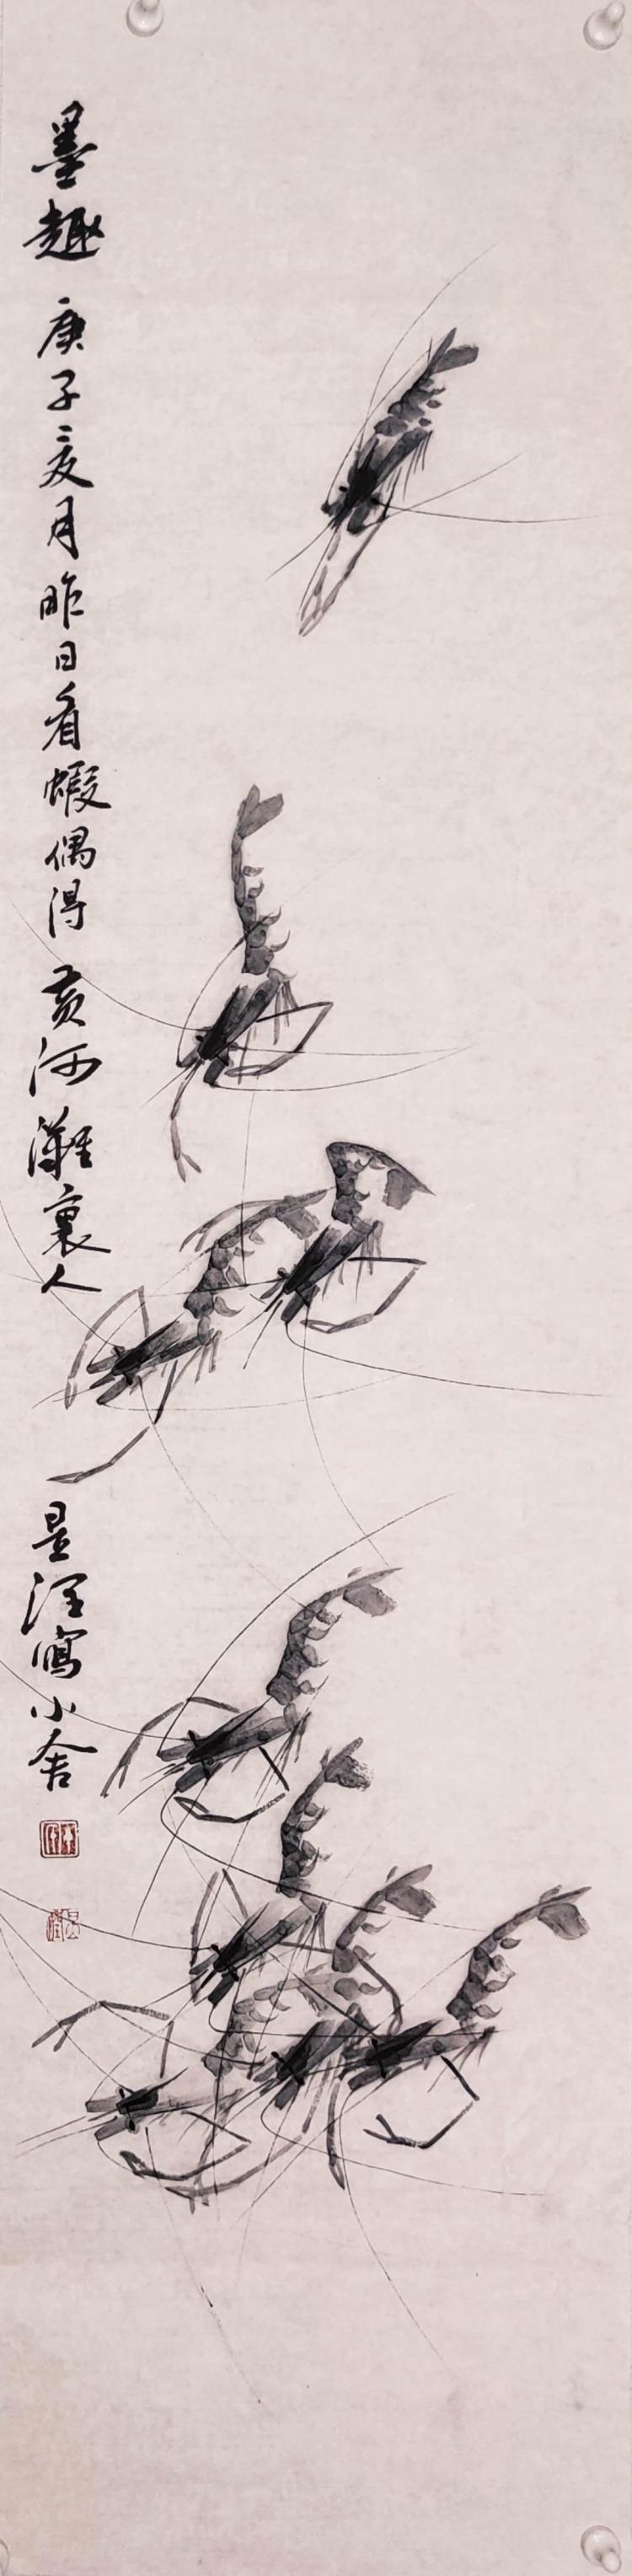 墨趣 庚子亥月昨日看蝦偶得 黄河灘裏人
是江寫小舍